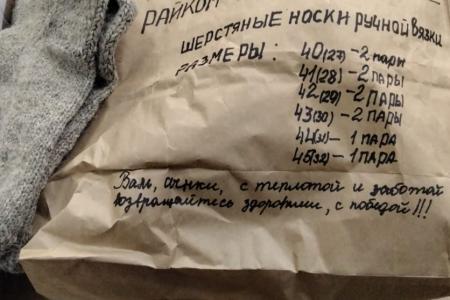 РАЙКОМ
ШЕРСТЯНЫЕ НОСКИ РУЧНОЙ ВЯЗКИ
РАЗМЕРЫ: 40(27)-2 пары
41(28)-2 ПАРЫ
42(29)-2 ПАРЫ
43(30)-2 ПАРЫ
44(31)-1 ПАРА
45(32)-1 ПАРА
Вам, сынки, с теплотой и заботой
возвращайтесь здоровыми, с победой!!!